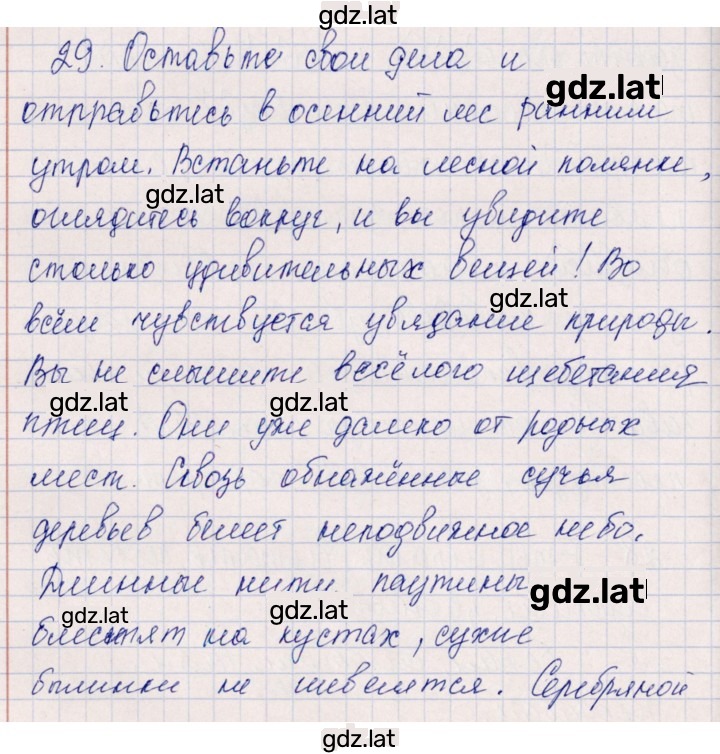 gdz.lat
29. Оставьте свои дела и
gdz.lat
отправьтесь в осенний лес ранним
утром. Встаньте на лесной полянке,
gdz.lat
оглядитесь вокруг, и вы увидите
столько удивительных вещей! Во
gdz.lat
всём чувствуется увядание природы.
Вы не слышите весёлого щебетания
gdz.lat gdz.lat
птиц. Они уже далеко от родных
мест. Сквозь обнажённые сучья
деревьев белеет неподвижное небо.
Длинные нити паутины
gdz.lat
gdz.lat gdz.lat
блестят на кустах, сухие
былинки не шевелятся. Серебряной
gdz.lat